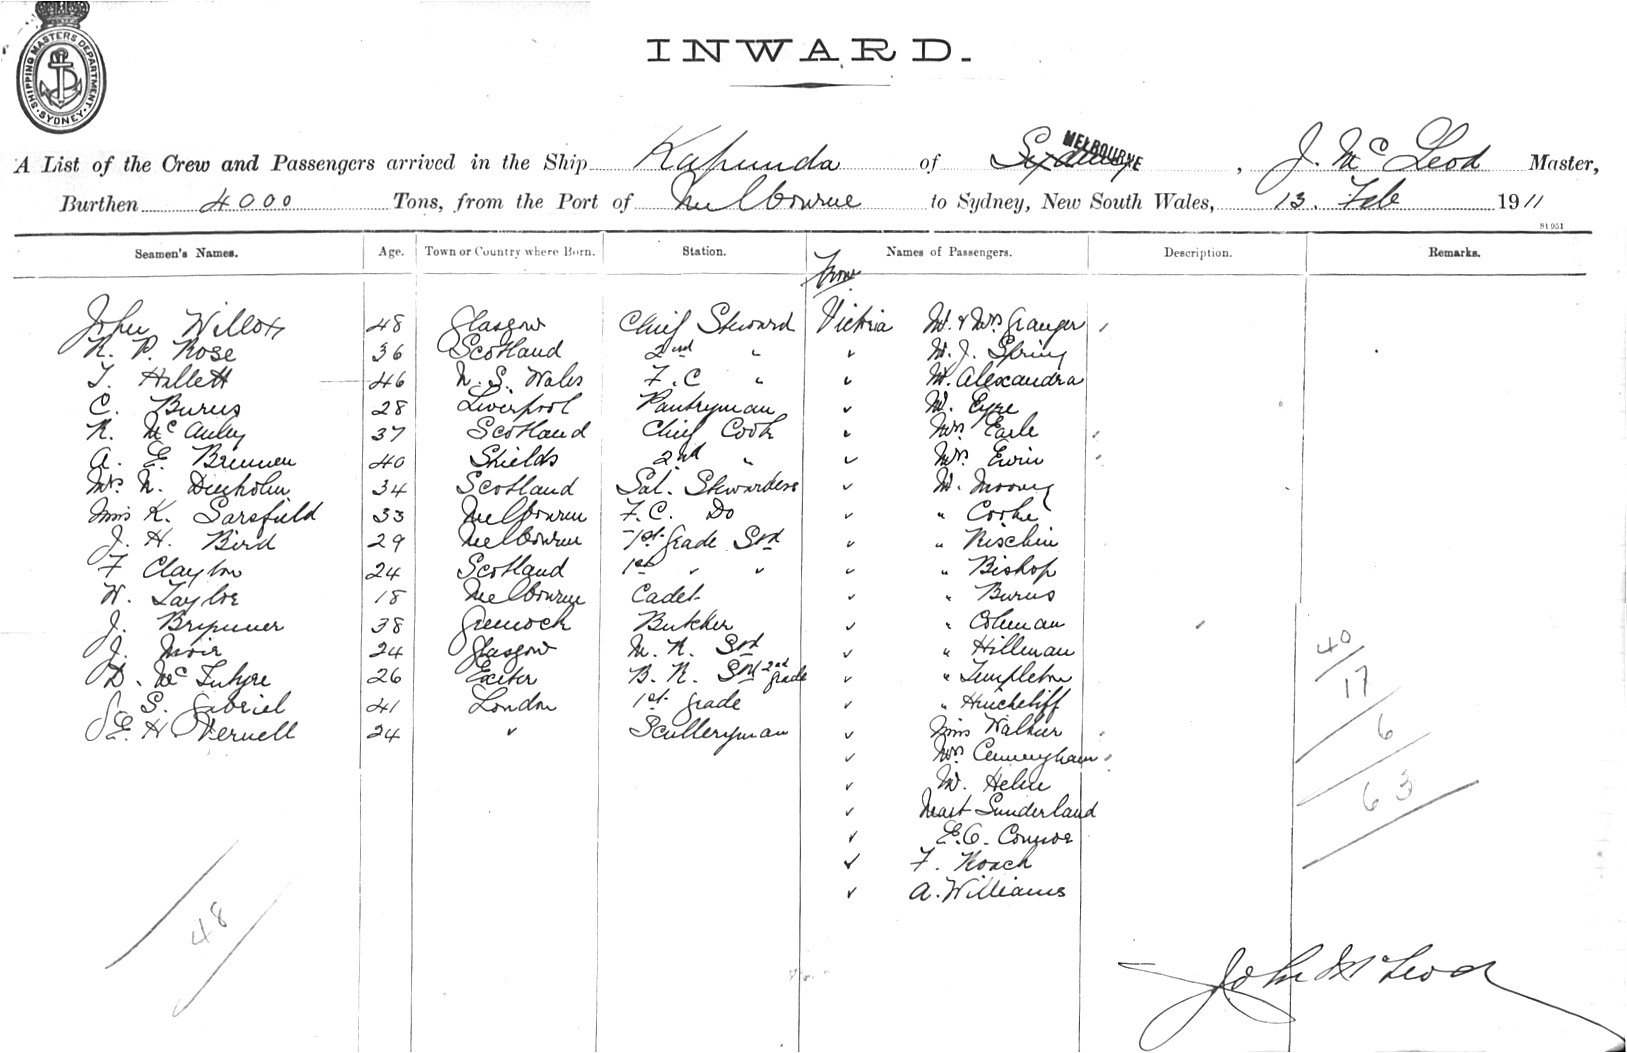 SHIPPING MASTERS DEPARTMENT. SYDNEY.
INWARD.
A List of the Crew and Passengers arrived in the Ship Kapunda of Sydney MELBOURNE, J. McLeod Master,
Burthen 4000 Tons, from the Port of Melbourne to Sydney, New South Wales, 13. Feb 1911
St 951
Seamen's Names. Age. Town or Country where Born. Station. Names of Passengers. Description. Remarks.
From
John Willox 48 Glasgow Chief Steward Victoria Mr & Mrs Granger
R. P. Rose 36 Scotland 2nd " " Mr. J. Spring
T. Hallett 46 N. S. Wales F. C " " Mr. Alexandra
C. Burns 28 Liverpool Pantryman " Mr. Eyre
R. McAuley 37 Scotland Chief Cook " Mrs Earle
A. E. Brennen 40 Shields 2nd " " Mrs Ewin
Mrs N. Denholm 34 Scotland Sal. Stewardess " Mr. Mooney
Miss K. Sarsfield 33 Melbourne F. C. Do " " Cooke
J. H. Bird 29 Melbourne 1st Grade Std " " Rischin
F Clayton 24 Scotland 1st " " " " Bishop
W. Taylor 18 Melbourne Cadet " " Burns
J. 38 Greenock Butcher " " Coleman
J. Moir 24 Glasgow M. R. Std " " Hillman
D. McIntyre 26 Exeter B. R. Std 2nd grade " " Templeton
S. Gabriel 41 London 1st grade " " Hinchcliff
E. H Vernell 24 " Sculleryman " Miss Walker
" Mrs Cunningham
" Mr. Helen
" Sunderland
" E. O. Connor
" F. Roach
" A. Williams
40
17
6
63
48
John McLeod